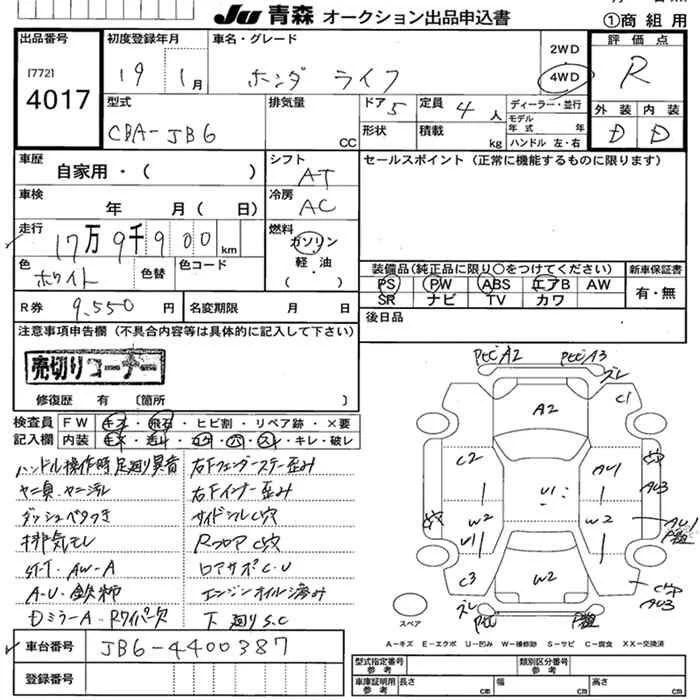 JU 青森 オークション出品申込書
①商組用
出品番号
[772]
4017
初度登録年月
19 1月
車名・グレード
ホンダ ライフ
2WD
4WD
評価点
R
型式
CBA-JB6
排気量
CC
ドア 5
定員 4人
ディーラー・並行
モデル年式 年
形状
積載 kg
ハンドル 左・右
外装 内装
D D
車歴
自家用・( )
シフト
AT
セールスポイント(正常に機能するものに限ります)
車検
年 月( 日)
冷房
AC
走行
17万9千900km
燃料
ガソリン
軽・油
( )
色
ホワイト
色替
色コード
装備品(純正品に限り○をつけてください)
新車保証書
PS PW ABS エアB AW
SR ナビ TV カワ
有・無
R券 9,550円
名変期限 月 日
後日品
注意事項申告欄(不具合内容等は具体的に記入して下さい)
売切りコーナー
修復歴 有 〔箇所 〕
検査員記入欄
FW キズ・飛石・ヒビ割・リペア跡・×要
内装 キズ・汚れ・コゲ・穴・スレ・キレ・破レ
ハンドル操作時足廻り異音
ヤニ臭・ヤニ汚レ
ダッシュベタつき
排気モレ
ST-T・AW-A
A-U・鉄柿
DミラーA・Rワイパー欠
右Fフェンダーステー歪み
右Fインナー歪み
サイドシルC穴
RフロアC穴
ロアサポC・U
エンジンオイル滲み
下廻りS.C
PtC A2
PtC A3
ズレ
C1
A2
C2
AU1
穴
AU3
U1
W2
W2
U1
穴
AU1
C3
W2
C穴
AU3
ズレ
PtC
スペア
A-キズ E-エクボ U-凹み W-補修跡 S-サビ C-腐食 XX-交換済
車台番号
JB6-4400387
登録番号
型式指定番号 参考
類別区分番号 参考
車庫証明用 参考
長さ cm
幅 cm
高さ cm